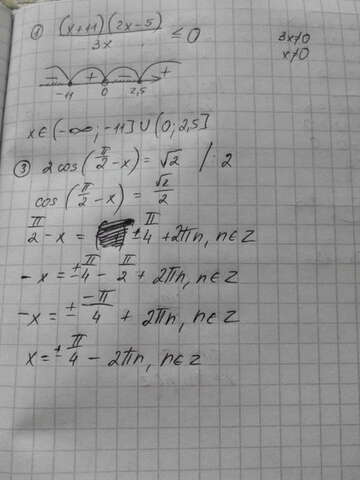 ① (x+11)(2x-5)/3x ≤ 0 3x≠0
x≠0
- + - +
-11 0 2,5
x∈(-∞; -11]∪(0; 2,5]
③ 2cos(π/2 - x) = √2 /: 2
cos(π/2 - x) = √2/2
π/2 - x = ± π/4 + 2πn, n∈Z
-x = ± π/4 - π/2 + 2πn, n∈Z
-x = ± -π/4 + 2πn, n∈Z
x = ± π/4 - 2πn, n∈Z